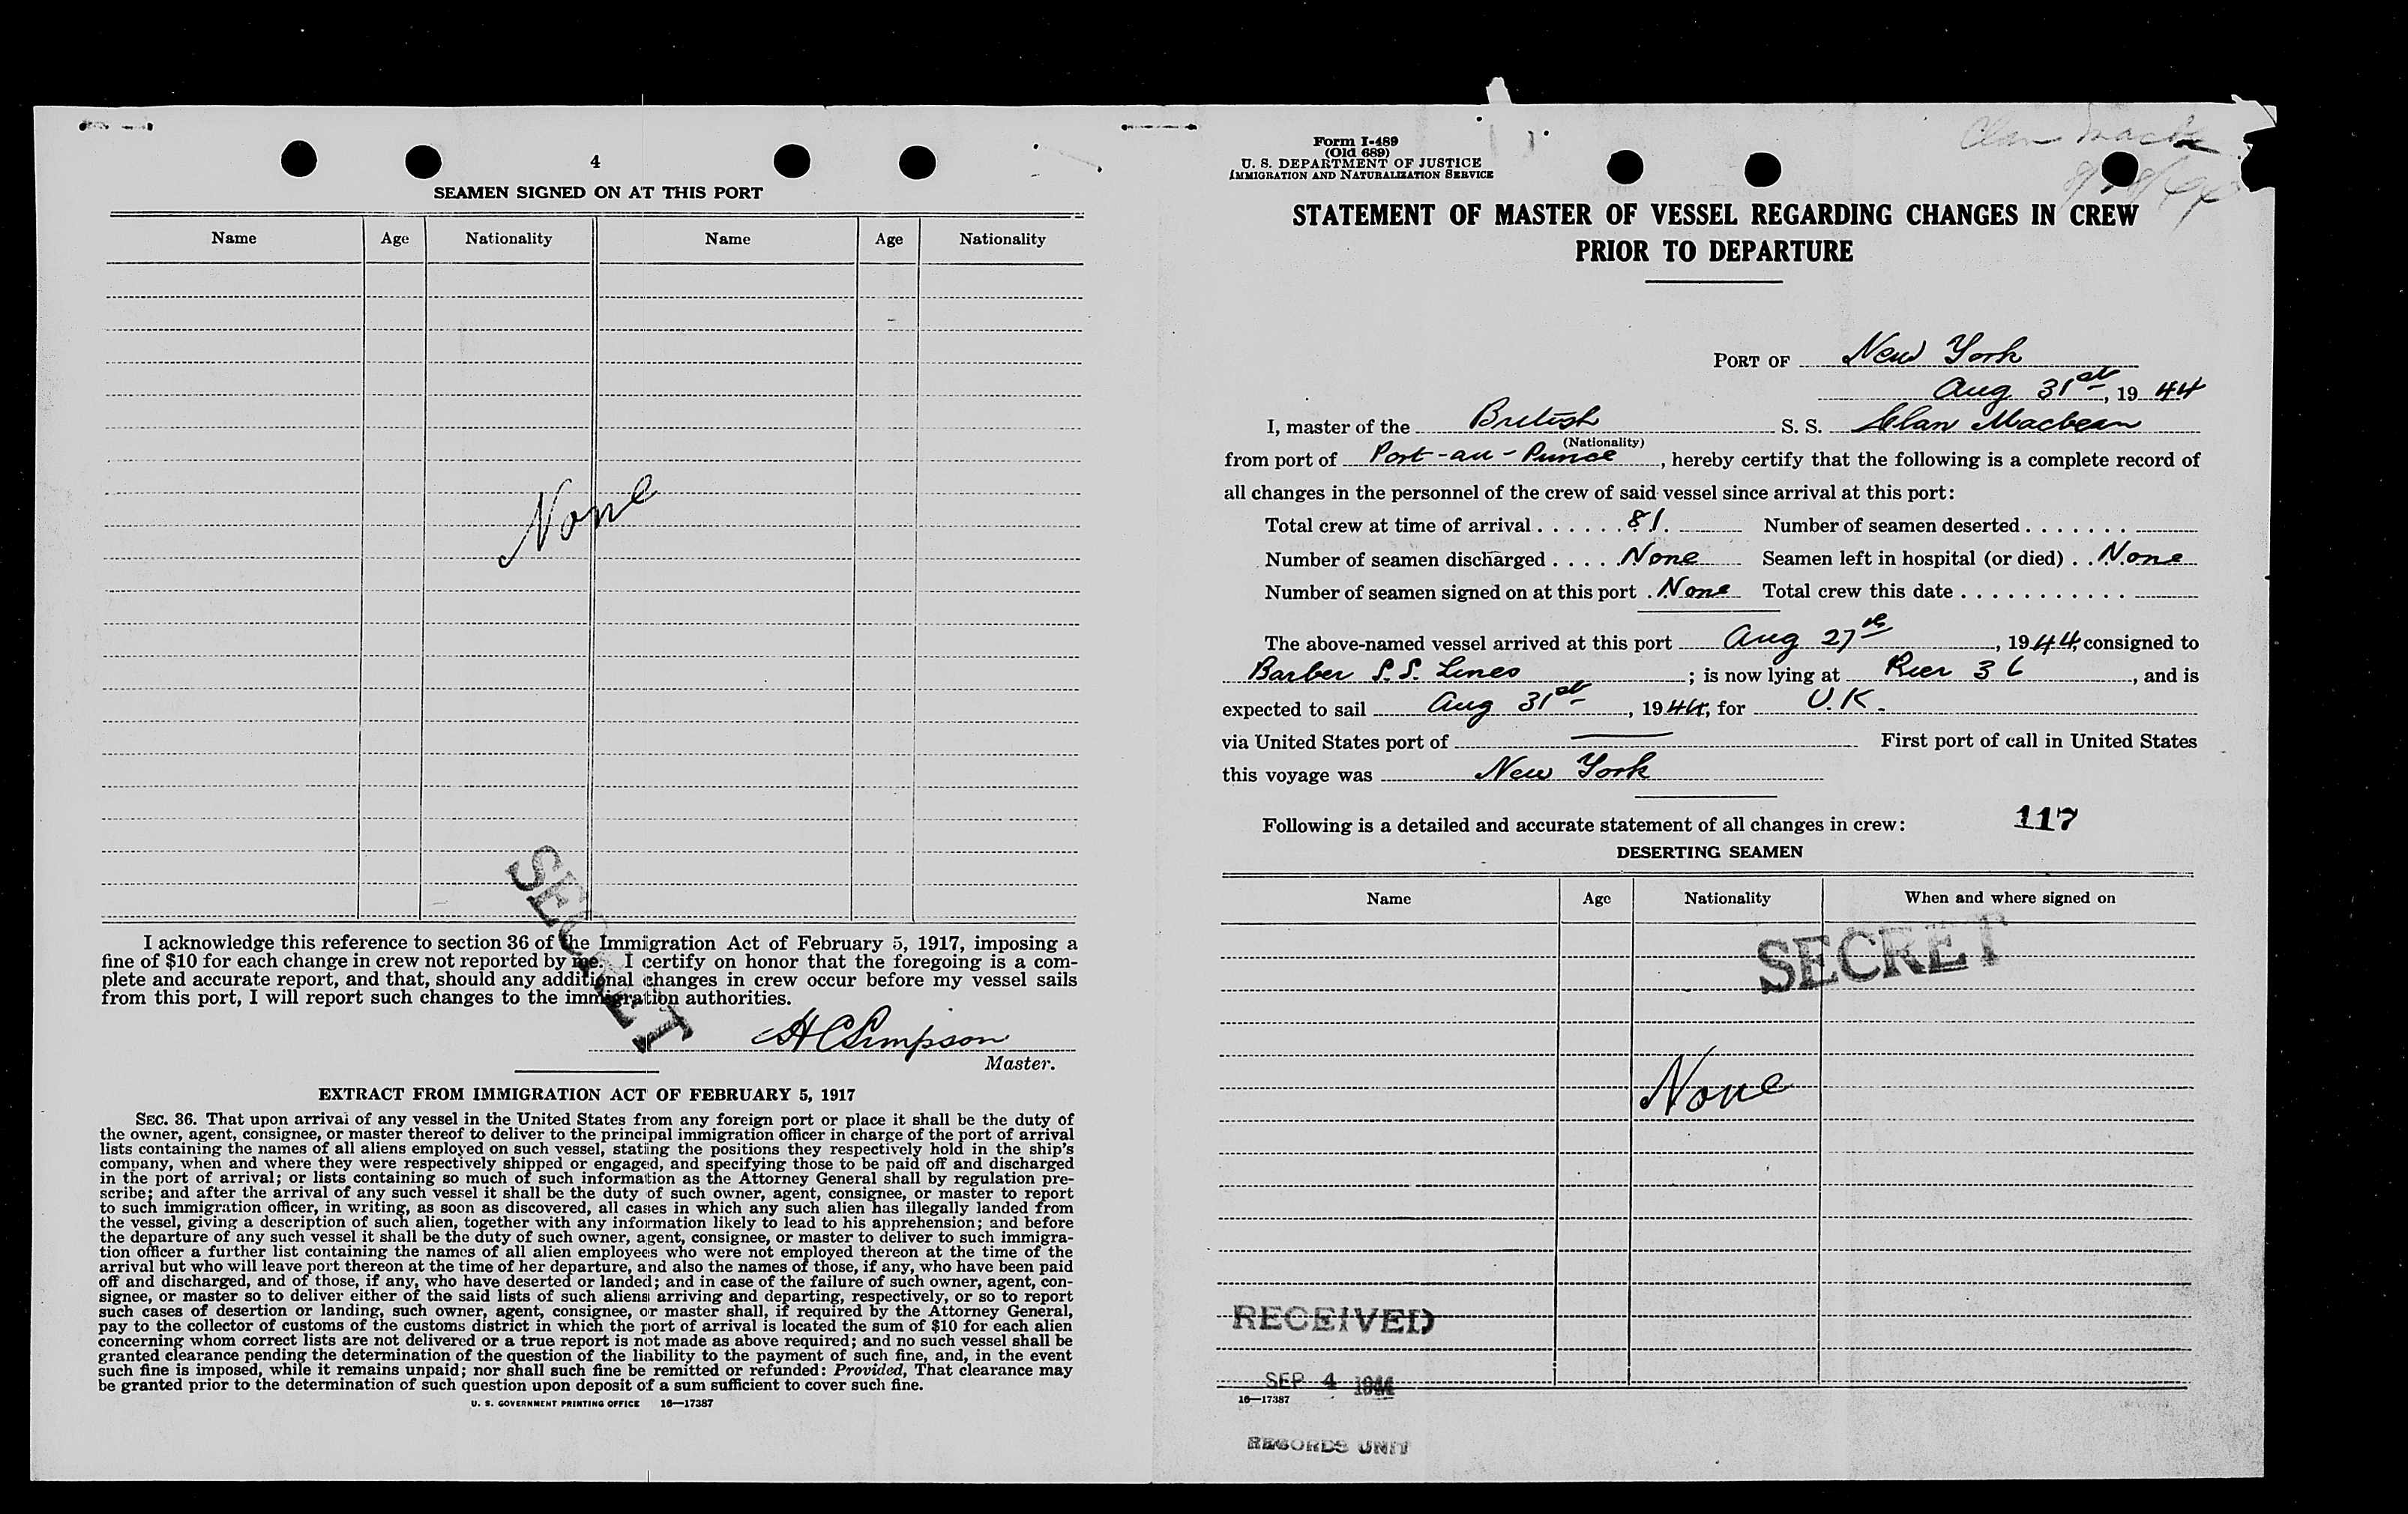 4
SEAMEN SIGNED ON AT THIS PORT
Name Age Nationality Name Age Nationality
None
SECRET
I acknowledge this reference to section 36 of the Immigration Act of February 5, 1917, imposing a
fine of $10 for each change in crew not reported by me. I certify on honor that the foregoing is a com-
plete and accurate report, and that, should any additional changes in crew occur before my vessel sails
from this port, I will report such changes to the immigration authorities.
HCSimpson
Master.
EXTRACT FROM IMMIGRATION ACT OF FEBRUARY 5, 1917
SEC. 36. That upon arrival of any vessel in the United States from any foreign port or place it shall be the duty of
the owner, agent, consignee, or master thereof to deliver to the principal immigration officer in charge of the port of arrival
lists containing the names of all aliens employed on such vessel, stating the positions they respectively hold in the ship's
company, when and where they were respectively shipped or engaged, and specifying those to be paid off and discharged
in the port of arrival; or lists containing so much of such information as the Attorney General shall by regulation pre-
scribe; and after the arrival of any such vessel it shall be the duty of such owner, agent, consignee, or master to report
to such immigration officer, in writing, as soon as discovered, all cases in which any such alien has illegally landed from
the vessel, giving a description of such alien, together with any information likely to lead to his apprehension; and before
the departure of any such vessel it shall be the duty of such owner, agent, consignee, or master to deliver to such immigra-
tion officer a further list containing the names of all alien employees who were not employed thereon at the time of the
arrival but who will leave port thereon at the time of her departure, and also the names of those, if any, who have been paid
off and discharged, and of those, if any, who have deserted or landed; and in case of the failure of such owner, agent, con-
signee, or master so to deliver either of the said lists of such aliens arriving and departing, respectively, or so to report
such cases of desertion or landing, such owner, agent, consignee, or master shall, if required by the Attorney General,
pay to the collector of customs of the customs district in which the port of arrival is located the sum of $10 for each alien
concerning whom correct lists are not delivered or a true report is not made as above required; and no such vessel shall be
granted clearance pending the determination of the question of the liability to the payment of such fine, and, in the event
such fine is imposed, while it remains unpaid; nor shall such fine be remitted or refunded: Provided, That clearance may
be granted prior to the determination of such question upon deposit of a sum sufficient to cover such fine.
U. S. GOVERNMENT PRINTING OFFICE 16—17387
Form I-489
(Old 689)
U. S. DEPARTMENT OF JUSTICE
IMMIGRATION AND NATURALIZATION SERVICE
Clan
STATEMENT OF MASTER OF VESSEL REGARDING CHANGES IN CREW
PRIOR TO DEPARTURE
PORT OF New York
Aug 31st, 19 44
I, master of the British S. S. Clan Macbean
(Nationality)
from port of Port-au-Prince, hereby certify that the following is a complete record of
all changes in the personnel of the crew of said vessel since arrival at this port:
Total crew at time of arrival . . . . . . 81. Number of seamen deserted . . . . . . .
Number of seamen discharged . . . . None Seamen left in hospital (or died) . . None
Number of seamen signed on at this port . None Total crew this date . . . . . . . . . . .
The above-named vessel arrived at this port Aug 27th, 1944, consigned to
Barber S.S. Lines; is now lying at Pier 36, and is
expected to sail Aug 31st, 1944, for U.K.
via United States port of — First port of call in United States
this voyage was New York
Following is a detailed and accurate statement of all changes in crew: 117
DESERTING SEAMEN
Name Age Nationality When and where signed on
SECRET
None
RECEIVED
SEP 4 1944
16—17387
RECORDS UNIT